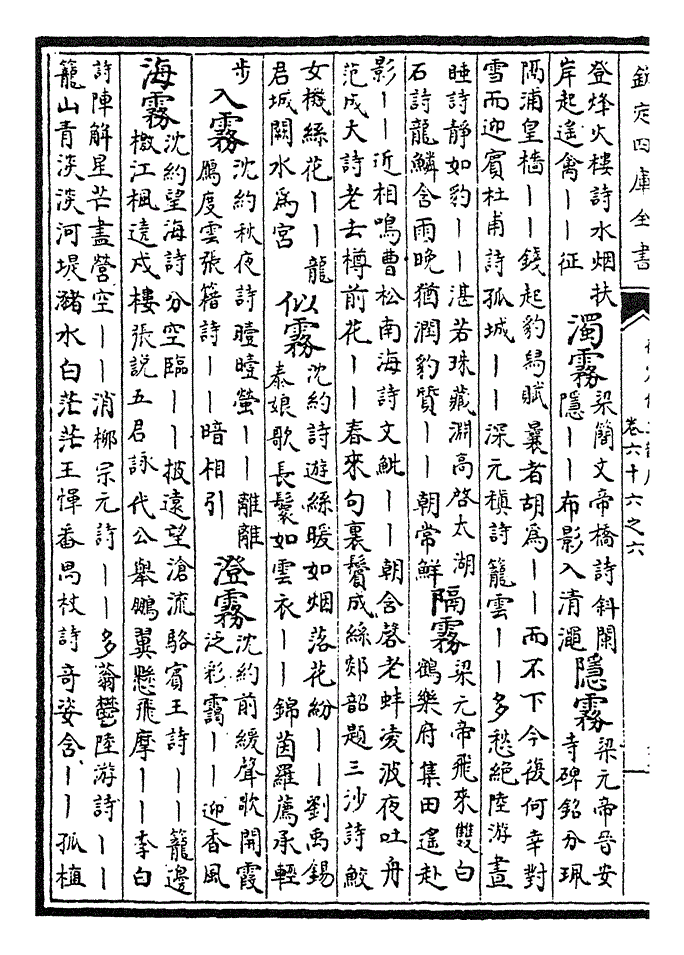 欽定四庫全書
卷六十六之六
登烽火樓詩水烟扶
岸起遙禽｜｜征
濁霧
梁簡文帝橋詩斜闌
隱｜｜布影入清澠
隱霧
梁元帝晉安
寺碑銘分珮
隅浦皇檣｜｜錢起豹舄賦曩者胡爲｜｜而不下今後何幸對
雪而迎賓杜甫詩孤城｜｜深元稹詩籠雲｜｜多愁絕陸游晝
睡詩靜如豹｜｜湛若珠藏淵高啓太湖
石詩龍鱗含雨晚猶潤豹質｜｜朝常鮮
隔霧
梁元帝飛來雙白
鶴樂府集田遙赴
影｜｜近相鳴曹松南海詩文魮｜｜朝含磬老蚌凌波夜吐舟
范成大詩老去樽前花｜｜春來句裏鬢成絲郯韶題三沙詩鮫
女機絲花｜｜龍
君城闕水爲宮
似霧
沈約詩遊絲暖如烟落花紛｜｜劉禹錫
泰娘歌長鬟如雲衣｜｜錦茵羅薦承輕
步
入霧
沈約秋夜詩曀曀螢｜｜離離
鴈度雲張籍詩｜｜暗相引
澄霧
沈約前緩聲歌開霞
泛彩靄｜｜迎香風
海霧
沈約望海詩分空臨｜｜披遠望滄流駱賓王詩｜｜籠邊
檄江楓遠戍樓張説五君詠代公舉鵬翼懸飛摩｜｜李白
詩陣解星芒盡營空｜｜消柳宗元詩｜｜多蓊鬱陸游詩｜｜
籠山青淡淡河堤瀦水白茫茫王惲番禺杖詩奇姿含｜｜孤植